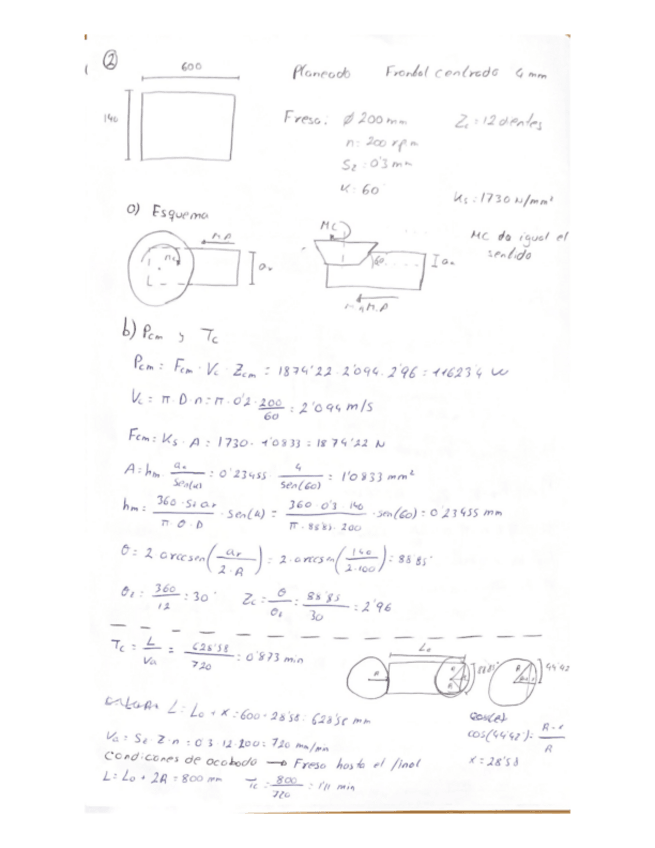 ②
600
140
Planeado Frontal centrado 4 mm
Fresa: Ø 200 mm Z: 12 dientes
n: 200 rpm
Sz: 0'3 mm
K: 60°
Ks: 1730 N/mm²
a) Esquema
MC da igual el
sentido
M.A
Mc
aa
MC
60
aa
M.A
b) Pcm y Tc
Pcm = Fcm · Vc · Zcm = 1874'22 · 2'094 · 2'96 = 11623'4 W
Vc = π · D · n = π · 0'2 · 200/60 = 2'094 m/s
Fcm = Ks · A = 1730 · 1'0833 = 1874'22 N
A = hm · aa/sen(K) = 0'23455 · 4/sen(60) = 1'0833 mm²
hm = 360 · Sz · ar/π · θ · D · sen(K) = 360 · 0'3 · 140/π · 88'85 · 200 · sen(60) = 0'23455 mm
θ = 2 · arcsen(ar/2·R) = 2 · arcsen(140/2·100) = 88'85°
θt = 360/12 = 30° Zc = θ/θt = 88'85/30 = 2'96
Tc = L/Va = 628'58/720 = 0'873 min
R
Lo
88'85°
44'42
L = Lo + x = 600 + 28'58 = 628'58 mm
cos(44'42) = R-x/R
x = 28'58
Va = Sz · Z · n = 0'3 · 12 · 200 = 720 mm/min
Condicones de acabado → Fresa hasta el final
L = Lo + 2R = 800 mm Tc = 800/720 = 1'11 min